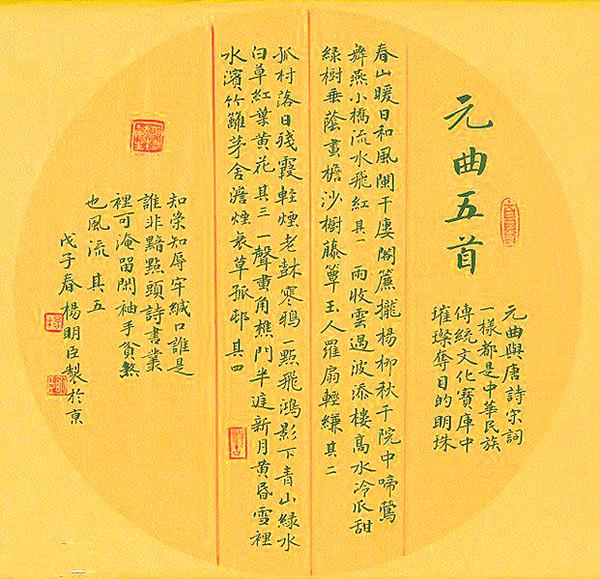 元曲五首
元曲與唐詩宋詞
一樣都是中華民族
傳統文化寶庫中
璀璨奪目的明珠
春山暖日和風闌干廔閣簾攏楊柳秋千院中啼鶯
舞燕小橋流水飛紅 其一 雨收雲過波添樓高水冷瓜甜
綠樹垂蔭畫檐沙樹藤簟玉人羅扇輕縑 其二
孤村落日殘霞輕煙老寒鴉一點飛鴻影下青山綠水
白草紅葉黃花 其三 一聲畫角樵門半庭新月黃昏雪裡
水濱竹籬茅舍澹煙衰草孤邨 其四
知榮知辱牢緘口誰是
誰非黯點頭詩書叢
裡可淹留閑袖手貧煞
也風流 其五
戊子春楊明臣製於京